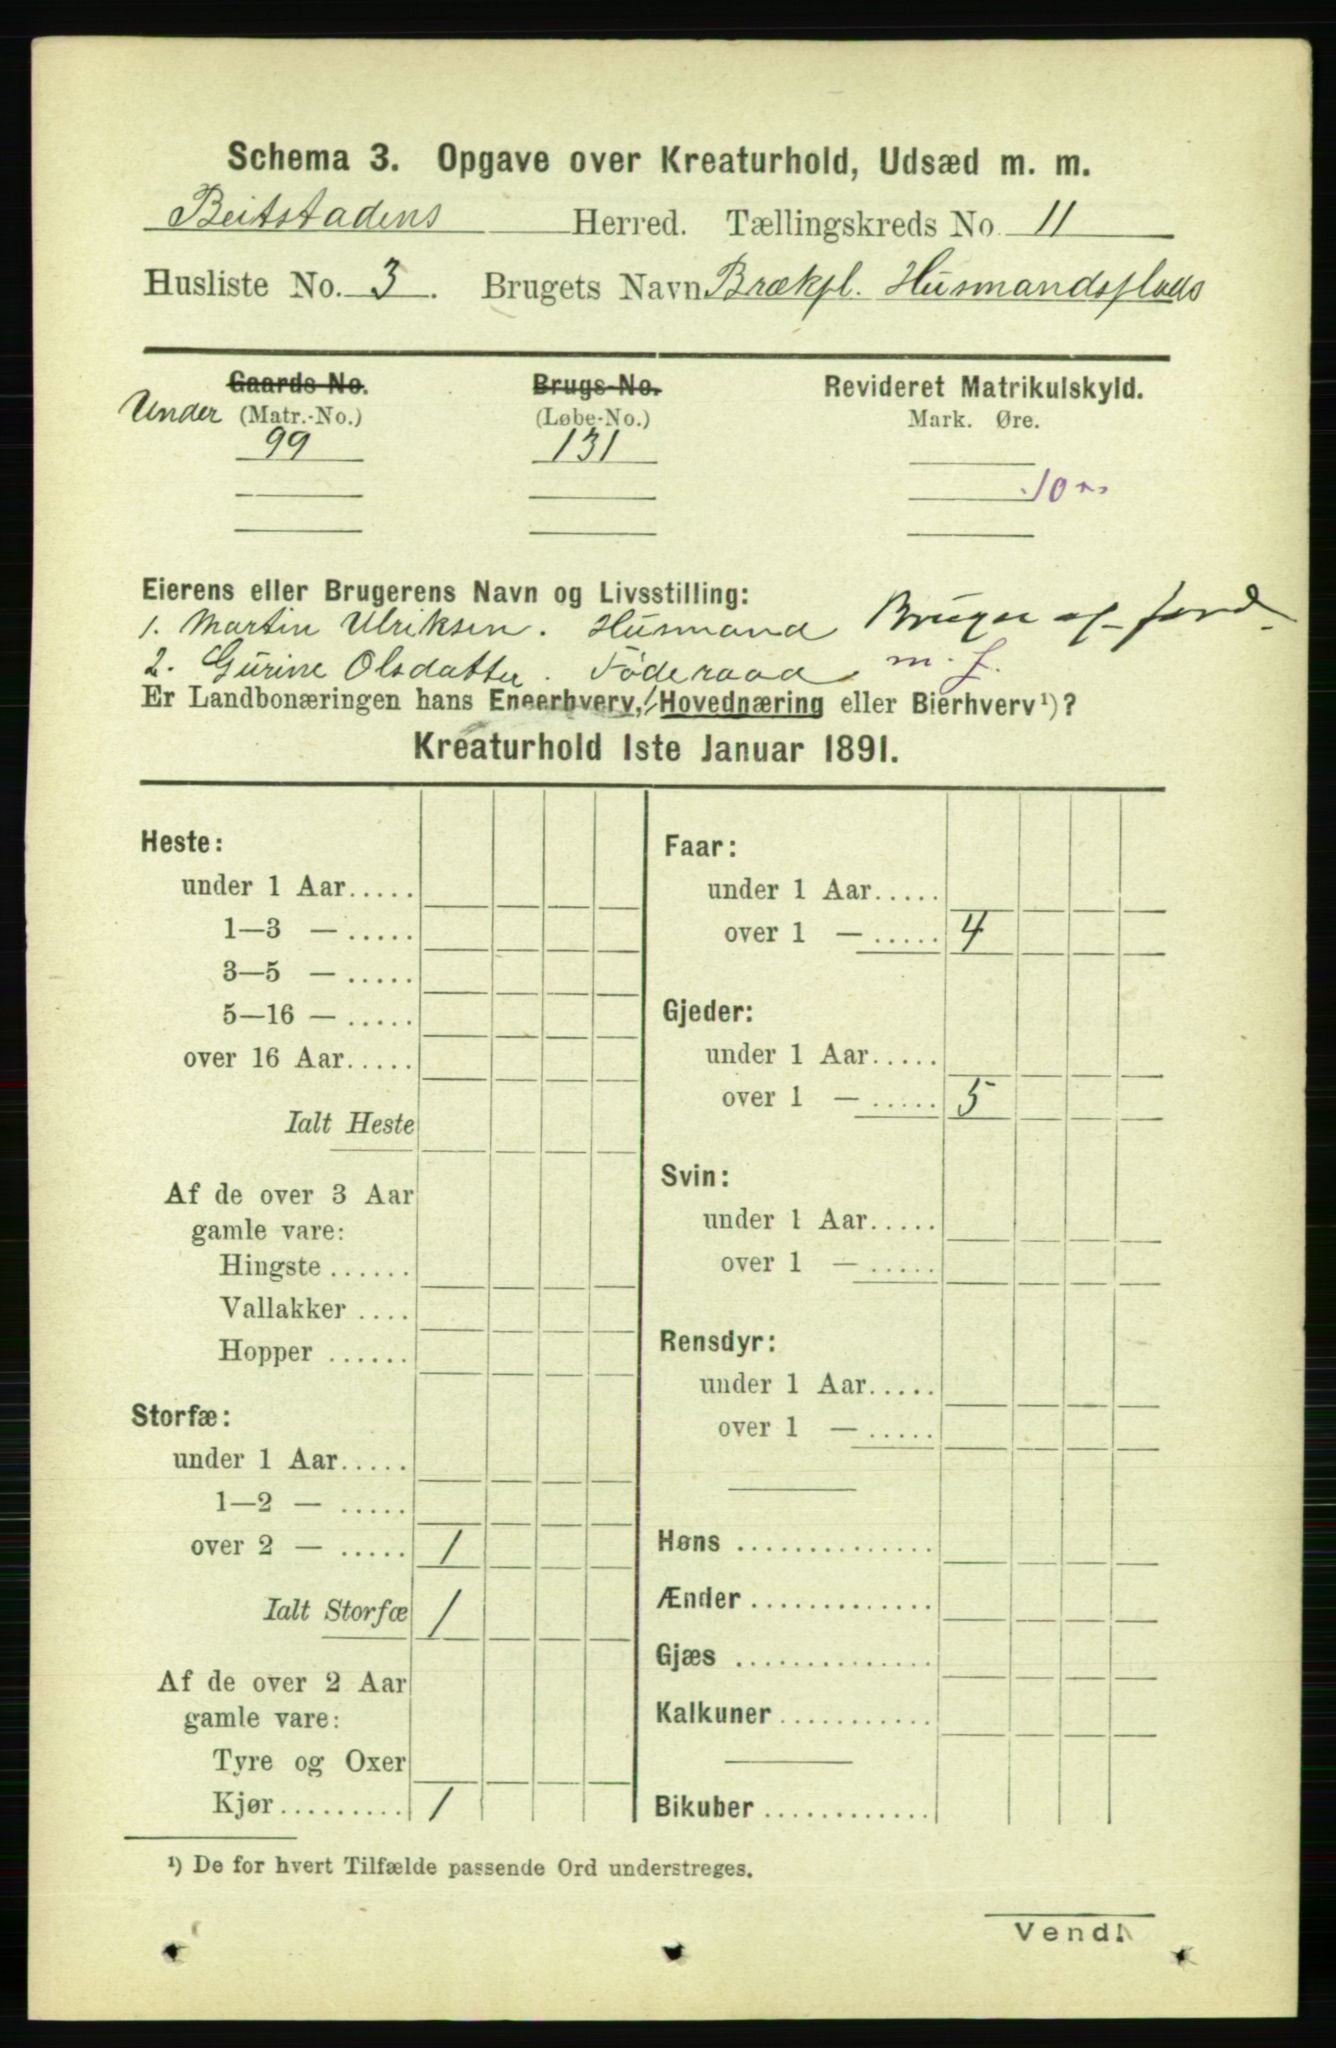 Schema 3. Opgave over Kreaturhold, Udsæd m. m.
Beitstadens Herred. Tællingskreds No. 11
Husliste No. 3. Brugets Navn Brækpl. Husmandsplads
Gaards-No. Brugs-No. Revideret Matrikulskyld.
Under (Matr.-No.) (Løbe-No.) Mark. Øre.
99 131
10
Eierens eller Brugerens Navn og Livsstilling:
1. Martin Ulriksen. Husmand Bruger af jord
2. Gurine Olsdatter. Føderaad m. J.
Er Landbonæringen hans Eneerhverv, Hovednæring eller Bierhverv¹)?
Kreaturhold 1ste Januar 1891.
Heste:
under 1 Aar.....
1—3 — .....
3—5 — .....
5—16 — .....
over 16 Aar.....
Ialt Heste
Af de over 3 Aar
gamle vare:
Hingste......
Vallakker ....
Hopper ......
Storfæ:
under 1 Aar.....
1—2 — .....
over 2 — ..... 1
Ialt Storfæ 1
Af de over 2 Aar
gamle vare:
Tyre og Oxer
Kjør......... 1
Faar:
under 1 Aar.....
over 1 — ..... 4
Gjeder:
under 1 Aar.....
over 1 — ..... 5
Svin:
under 1 Aar.....
over 1 — .....
Rensdyr:
under 1 Aar.....
over 1 — .....
Høns ..............
Ænder .............
Gjæs ..............
Kalkuner...........
Bikuber ............
¹) De for hvert Tilfælde passende Ord understreges.
Vend!